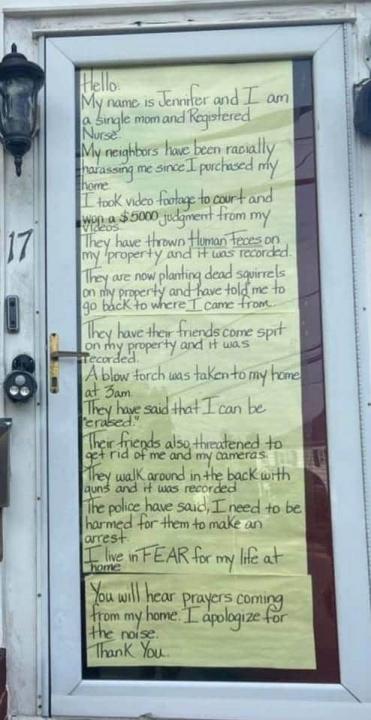 Hello:
My name is Jennifer and I am
a single mom and Registered
Nurse.
My neighbors have been racially
harassing me since I purchased my
home.
I took video footage to court and
won a $5000 judgment from my
videos.
They have thrown Human Feces on
my property and it was recorded.
They are now planting dead squirrels
on my property and have told me to
go back to where I came from.
They have their friends come spit
on my property and it was
recorded.
A blow torch was taken to my home
at 3am.
They have said that I can be
"erased."
Their friends also threatened to
get rid of me and my cameras.
They walk around in the back with
guns and it was recorded
The police have said, I need to be
harmed for them to make an
arrest.
I live in FEAR for my life at
home
You will hear prayers coming
from my home. I apologize for
the noise.
Thank You.
17